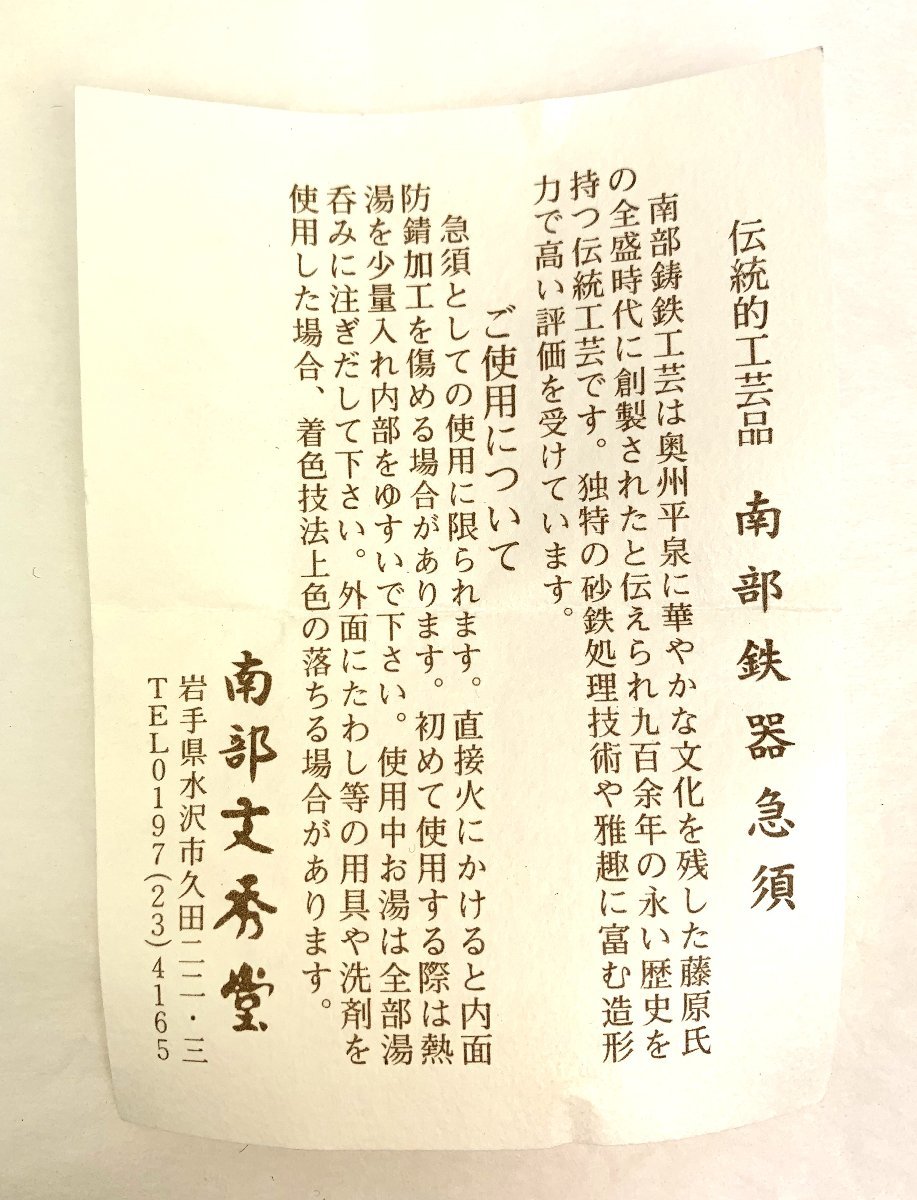 伝統的工芸品 南部鉄器急須
南部鋳鉄工芸は奥州平泉に華やかな文化を残した藤原氏
の全盛時代に創製されたと伝えられ九百余年の永い歴史を
持つ伝統工芸です。独特の砂鉄処理技術や雅趣に富む造形
力で高い評価を受けています。
ご使用について
急須としての使用に限られます。直接火にかけると内面
防錆加工を傷める場合があります。初めて使用する際は熱
湯を少量入れ内部をゆすいで下さい。使用中お湯は全部湯
呑みに注ぎだして下さい。外面にたわし等の用具や洗剤を
使用した場合、着色技法上色の落ちる場合があります。
南部文秀堂
岩手県水沢市久田二二・三
TEL0197(23)4165